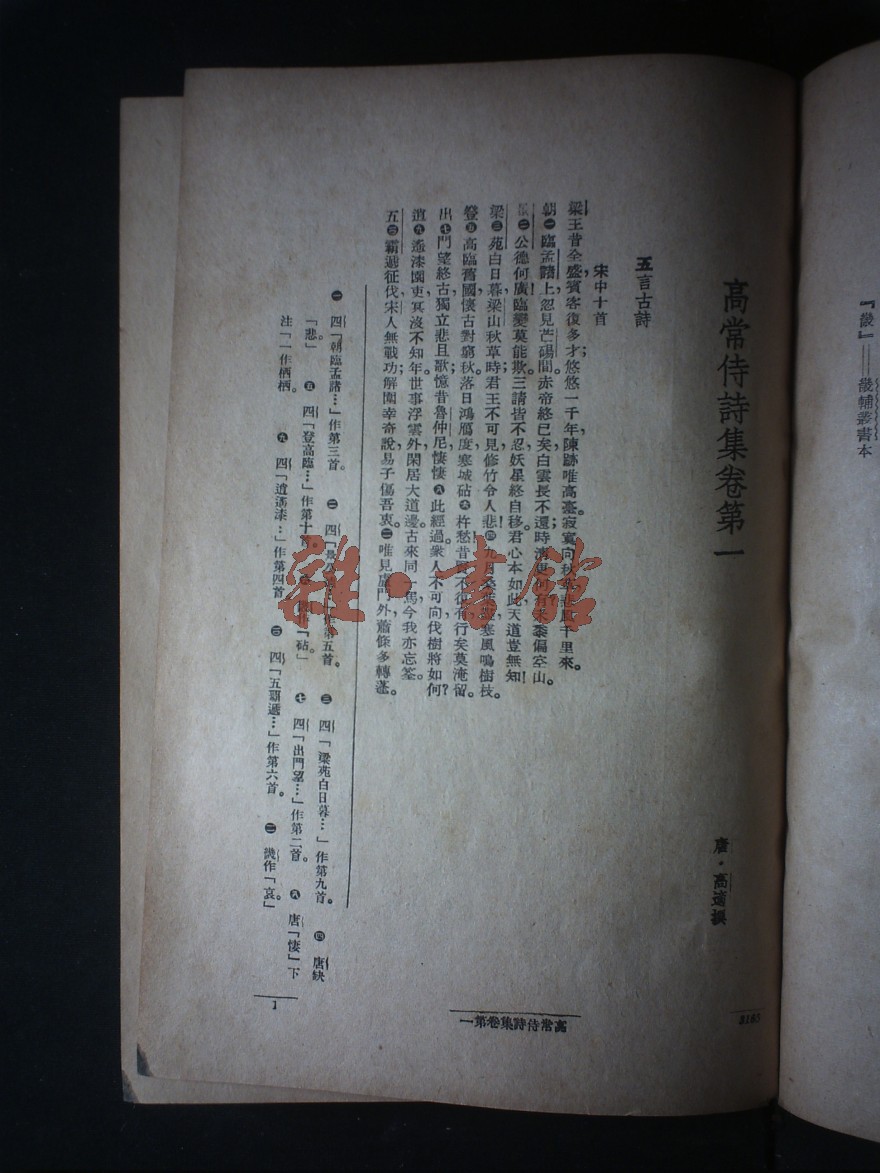 『畿』——畿輔叢書本
高常侍詩集卷第一
唐·高適撰
五言古詩
宋中十首
梁王昔全盛,賓客復多才;悠悠一千年,陳跡唯高臺。寂寞向秋草,悲風千里來。
朝㊀臨孟諸上,忽見芒碭間。赤帝終已矣,白雲長不還;時清更何有?禾黍偏空山。
㊁公德何廣,臨變莫能欺;三請皆不忍,妖星終自移。君心本如此,天道豈無知!
梁㊂苑白日暮,梁山秋草時;君王不可見,修竹令人悲!㊃九月桑葉盡,寒風鳴樹枝。
登㊄高臨舊國,懷古對窮秋。落日鴻雁度,寒城砧㊅杵愁。昔賢不復有,行矣莫淹留。
出㊆門望終古,獨立悲且歌;憶昔魯仲尼,悽悽㊇此經過。衆人不可向,伐樹將如何?
逍㊈遙漆園吏,冥沒不知年;世事浮雲外,閑居大道邊。古來同一馬,今我亦忘筌。
五㊉霸遞征伐,宋人無戰功;解圍幸奇說,易子傷吾衷。㊁唯見盧門外,蕭條多轉蓬。
㊀ 四「朝臨孟諸…」作第三首。 ㊁ 四「景公德…」作第五首。 ㊂ 四「梁苑白日暮…」作第九首。 ㊃ 唐缺
「悲」 ㊄ 四「登高臨…」作第十首。 作「砧」 ㊆ 四「出門望…」作第二首。 ㊇ 唐「悽」下
注「一作栖栖。 ㊈ 四「逍遙漆…」作第四首 ㊉ 四「五霸遞…」作第六首。 ㊁ 畿作「哀。」
1
高常侍詩集卷第一
3165
雜·書館